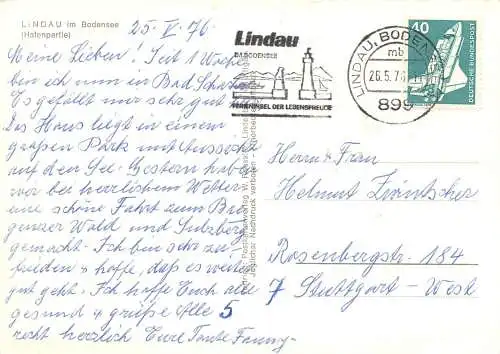 LINDAU im Bodensee
(Hafenpartie)
25. V. 76
Meine Lieben! Seit 1 Woche
bin ich nun in Bad Schachen
Es gefällt mir sehr gut
Das Haus liegt in einem
großen Park mit Aussicht
auf den See. Gestern haben
wir bei herrlichem Wetter
eine schöne Fahrt zum Bre-
genzer Wald und Sulzberg
gemacht. Ich bin sehr zu-
frieden & hoffe, daß es weiter
gut geht. Ich hoffe Euch alle
gesund & grüße Alle
recht herzlich Eure Tante Fanny
5
Lindau
IM BODENSEE
FERIENINSEL DER LEBENSFREUDE
LINDAU, BODENSEE
mb
26.5.76
899
40
DEUTSCHE BUNDESPOST
Herrn & Frau
Helmut
Rosenbergstr. 184
7 Stuttgart - West